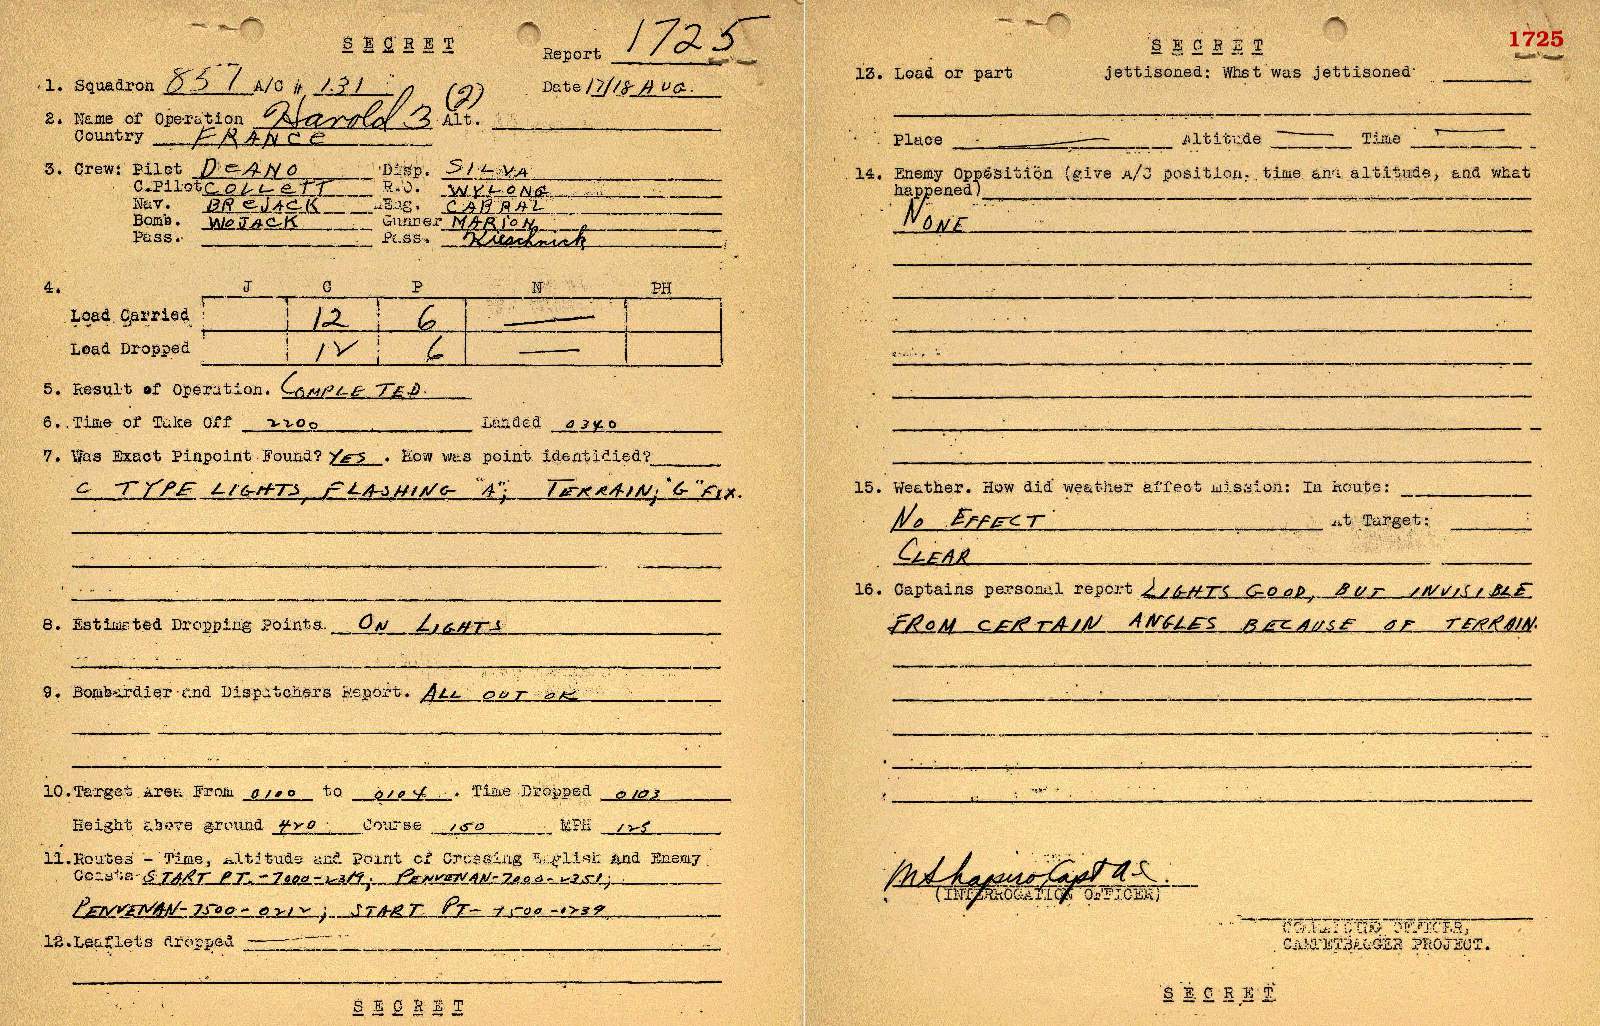 SECRET
Report 1725
1. Squadron 857 A/C # 131 Date 17/18 AUG.
2. Name of Operation Harold 3 (2) Alt.
Country FRANCE
3. Crew: Pilot DEANO Disp. SILVA
C.Pilot COLLETT R.O. WYLONG
Nav. BREJACK Eng. CABRAL
Bomb. WOJACK Gunner MARION
Pass. Pass. Kieschnick
4. J C P N PH
Load Carried 12 6 —
Load Dropped 12 6 —
5. Result of Operation. COMPLETED.
6. Time of Take Off 2200 Landed 0340
7. Was Exact Pinpoint Found? YES . How was point identidied?
C TYPE LIGHTS, FLASHING "A"; TERRAIN; "G" FIX.
8. Estimated Dropping Points. ON LIGHTS
9. Bombardier and Dispatchers Report. ALL OUT OK
10. Target Area From 0100 to 0104 . Time Dropped 0103
Height above ground 420 Course 150 MPH 125
11. Routes - Time, Altitude and Point of Crossing English and Enemy
Coasts START PT. - 7000 - 2319; PENVENAN - 7000 - 2351;
PENVENAN - 7500 - 0212; START PT - 7500 - 0239
12. Leaflets dropped —
SECRET
SECRET
1725
13. Load or part jettisoned: What was jettisoned
Place — Altitude — Time —
14. Enemy Oppösitiön (give A/C position, time and altitude, and what
happened)
NONE
15. Weather. How did weather affect mission: In Route:
NO EFFECT At Target:
CLEAR
16. Captains personal report LIGHTS GOOD, BUT INVISIBLE
FROM CERTAIN ANGLES BECAUSE OF TERRAIN.
M Shapiro Capt A.C.
(INTERROGATION OFFICER)
OFFICER,
CARPETBAGGER PROJECT.
SECRET